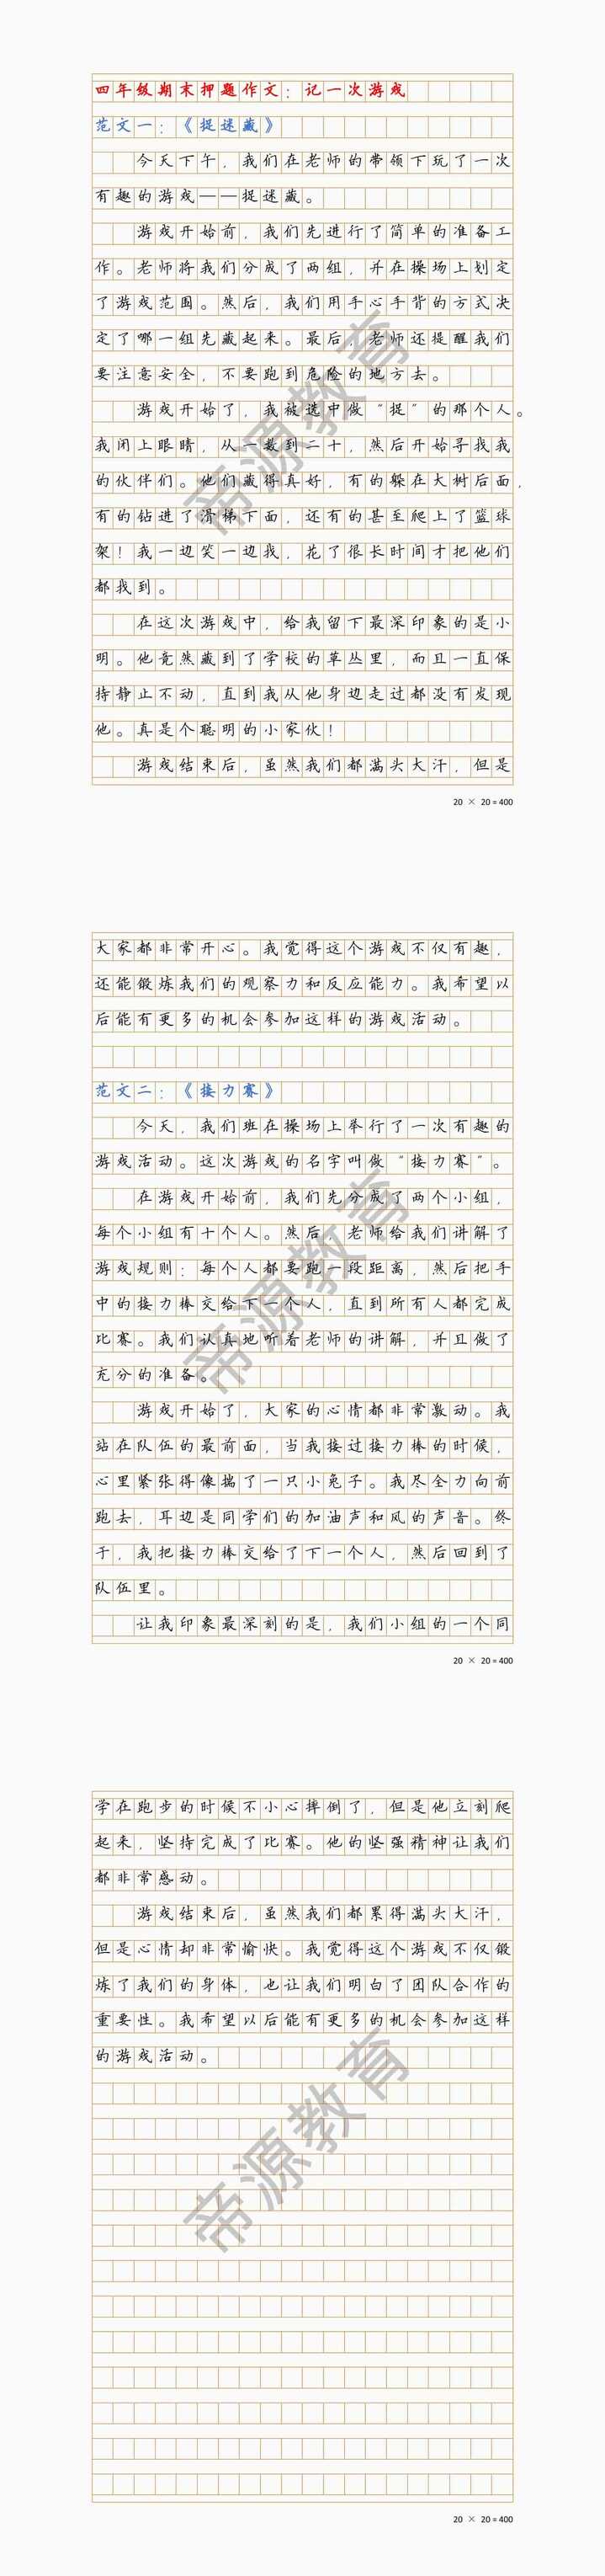 四年级期末押题作文：记一次游戏
范文一：《捉迷藏》
今天下午，我们在老师的带领下玩了一次
有趣的游戏——捉迷藏。
游戏开始前，我们先进行了简单的准备工
作。老师将我们分成了两组，并在操场上划定
了游戏范围。然后，我们用手心手背的方式决
定了哪一组先藏起来。最后，老师还提醒我们
要注意安全，不要跑到危险的地方去。
游戏开始了，我被选中做“捉”的那个人。
我闭上眼睛，从一数到二十，然后开始寻找我
的伙伴们。他们藏得真好，有的躲在大树后面，
有的钻进了滑梯下面，还有的甚至爬上了篮球
架！我一边笑一边找，花了很长时间才把他们
都找到。
在这次游戏中，给我留下最深印象的是小
明。他竟然藏到了学校的草丛里，而且一直保
持静止不动，直到我从他身边走过都没有发现
他。真是个聪明的小家伙！
游戏结束后，虽然我们都满头大汗，但是
20 × 20 = 400
大家都非常开心。我觉得这个游戏不仅有趣，
还能锻炼我们的观察力和反应能力。我希望以
后能有更多的机会参加这样的游戏活动。
范文二：《接力赛》
今天，我们班在操场上举行了一次有趣的
游戏活动。这次游戏的名字叫做“接力赛”。
在游戏开始前，我们先分成了两个小组，
每个小组有十个人。然后，老师给我们讲解了
游戏规则：每个人都要跑一段距离，然后把手
中的接力棒交给下一个人，直到所有人都完成
比赛。我们认真地听着老师的讲解，并且做了
充分的准备。
游戏开始了，大家的心情都非常激动。我
站在队伍的最前面，当我接过接力棒的时候，
心里紧张得像揣了一只小兔子。我尽全力向前
跑去，耳边是同学们的加油声和风的声音。终
于，我把接力棒交给了下一个人，然后回到了
队伍里。
让我印象最深刻的是，我们小组的一个同
20 × 20 = 400
学在跑步的时候不小心摔倒了，但是他立刻爬
起来，坚持完成了比赛。他的坚强精神让我们
都非常感动。
游戏结束后，虽然我们都累得满头大汗，
但是心情却非常愉快。我觉得这个游戏不仅锻
炼了我们的身体，也让我们明白了团队合作的
重要性。我希望以后能有更多的机会参加这样
的游戏活动。
20 × 20 = 400
帝源教育
帝源教育
帝源教育